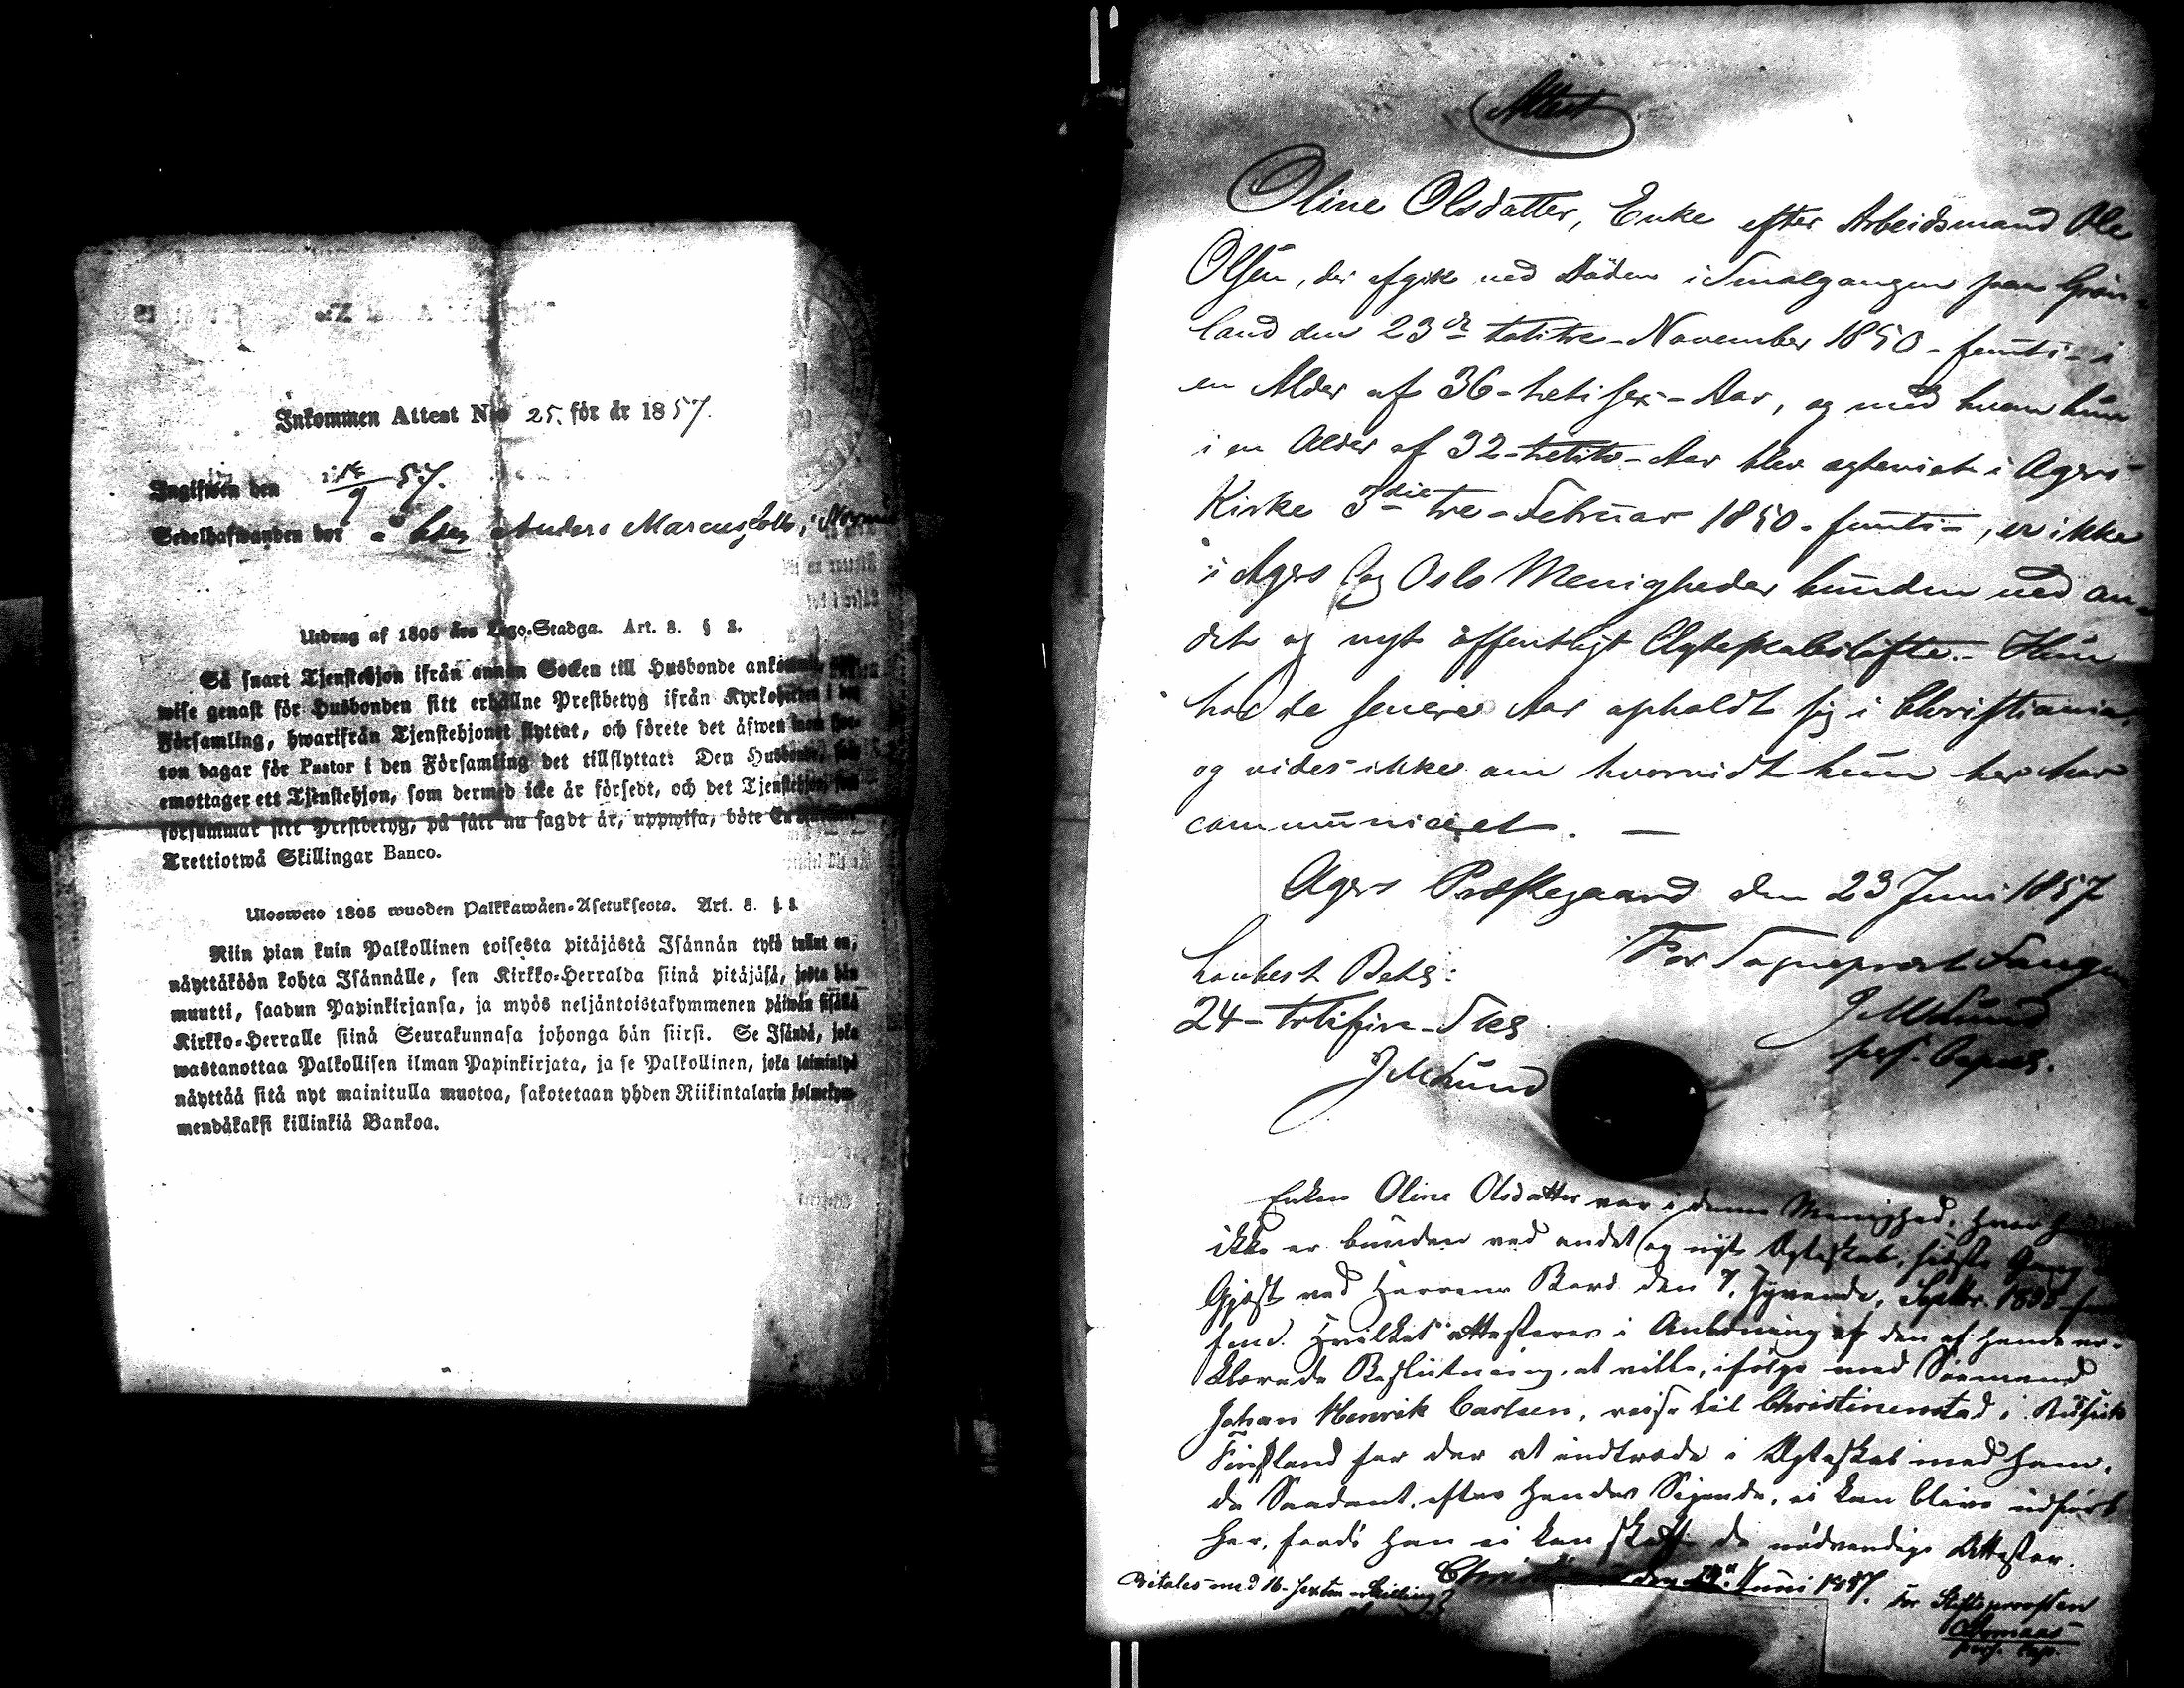 Inkommen Attest N:o 25. för år 1857.
Ingifwen den 57.
Sedelhafwanden bor Anders Marcus
Utdrag af 1805 års Lego-Stadga. Art. 8. § 8.
Så snart Tjenstehjon ifrån annan Socken till Husbonde
wise genast för Husbonden sitt erhållne Prestbetyg ifrån
Församling, hwarifrån Tjenstehjonet flyttat, och förete det äfwen inom
ton dagar för Pastor i den Församling det tillflyttat: Den
emottager ett Tjenstehjon, som dermed icke är försedt, och det
försummar sitt Prestbetyg, på sätt nu sagdt är, uppwisa, böte
Trettiotwå Skillingar Banco.
Ulosweto 1805 wuoden Palkkawäen-Asetuksesta. Art. 8. §. 8.
Niin pian kuin Palkollinen toisesta pitäjästä Isännän tykö tullut on,
näyttäköön kohta Isännälle, sen Kirkko-Herralda siinä pitäjäsä, josta hän
muutti, saadun Papinkirjansa, ja myös neljäntoistakymmenen päiwän sisällä
Kirkko-Herralle siinä Seurakunnasa johonga hän siirsi. Se Isändä, joka
wastanottaa Palkollisen ilman Papinkirjata, ja se Palkollinen, joka laiminlyö
näyttää sitä nyt mainitulla muotoa, sakotetaan yhden Riikintalarin kolmekym-
mendäkaksi killinkiä Bankoa.
Attest
Oline Olsdatter, Enke efter Arbeidsmand Ole
Olsen, der afgik ved Døden i Smalgangen paa Grøn-
land den 23de totitre - November 1850 - femti - i
en Alder af 36 - treti sex - Aar, og med hvem hun
i en Alder af 32 - tretito - Aar blev ægteviet i Agers
Kirke 3die tre - Februar 1850 - femti -, er ikke
i Agers og Oslo Menigheder bunden ved an-
det og nyt offentligt Ægteskabsløfte. - Hun
har de senere Aar opholdt sig i Christiania,
og vides ikke om hvorvidt hun her har
communiceret. —
Agers Præstegaard den 23 Juni 1857
For Sogneprest
24 - totifire - Skg
J M Lund
J M Lund
pers. Capel.
Enken Oline Olsdatter var i denne Menighed, hvor
ikke er bunden ved andet og nyt Ægteskab, sidste Gang
Gjæst ved Herrens Bord den 7, syvende, Septbr.
Hvilket attesteres i Anledning af den af hende er-
klærede Beslutning, at ville, ifølge med Sømand
Johan Henrik Carlsen, reise til Christinenstad i Russisk
Finland for der at indtræde i Ægteskab med ham,
da Saadant, efter hendes Sigende, ei kan blive udført
her, fordi han ei kan skaffe de nødvendige Attester.
Juni 1857.
Betales med 16 - sexten - Skilling
For Stiftsprovsten
pers. Cap.